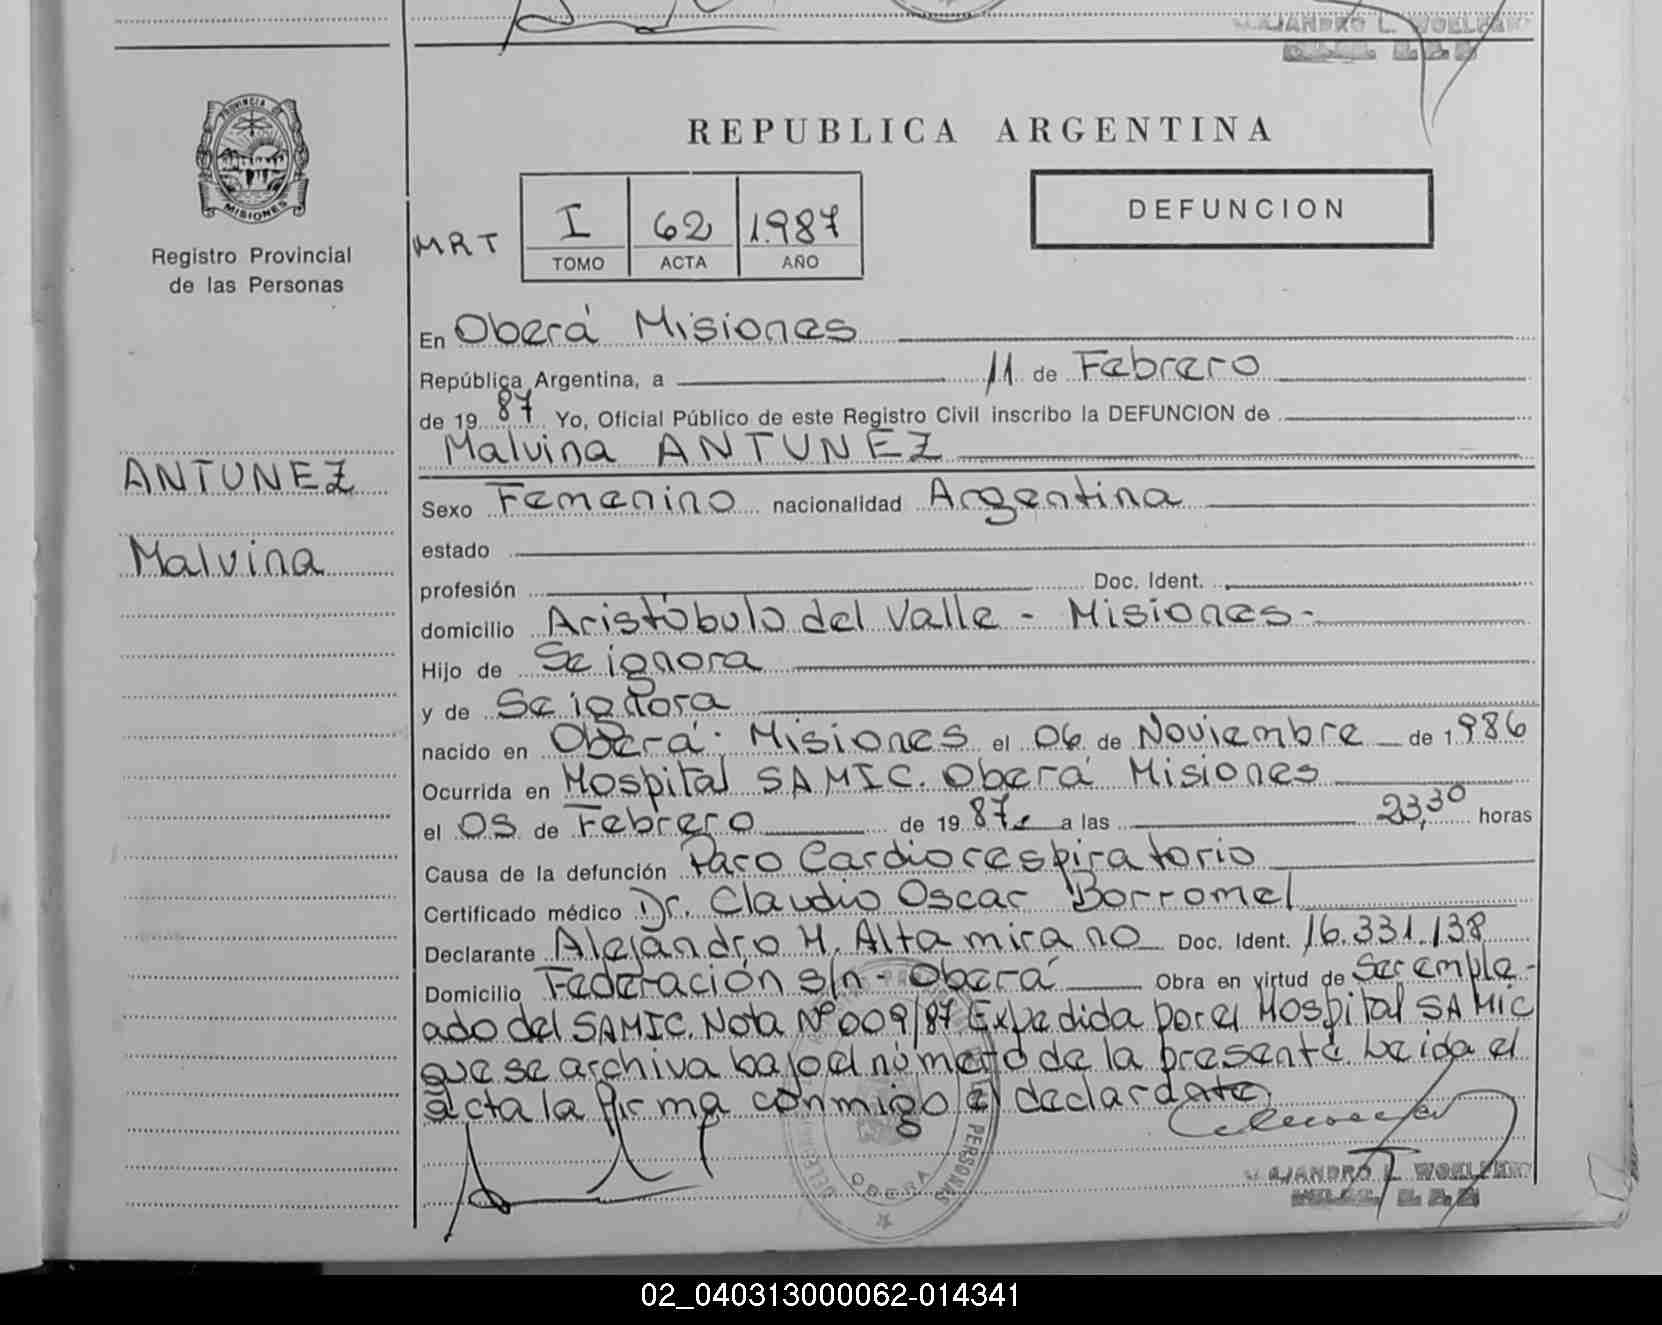 ALEJANDRO L. WOELFERT
PROVINCIA DE
MISIONES
Registro Provincial
de las Personas
REPUBLICA ARGENTINA
DEFUNCION
MRT
I 62 1.987
TOMO ACTA AÑO
ANTUNEZ
Malvina
En Oberá Misiones
República Argentina, a 11 de Febrero
de 19 87 Yo, Oficial Público de este Registro Civil inscribo la DEFUNCION de
Malvina ANTUNEZ
Sexo Femenino nacionalidad Argentina
estado
profesión Doc. Ident.
domicilio Aristóbulo del Valle - Misiones-
Hijo de Se ignora
y de Se ignora
nacido en Oberá. Misiones el 06 de Noviembre de 1986
Ocurrida en Hospital SAMIC. Oberá Misiones
el 05 de Febrero de 19 87 a las 23,30 horas
Causa de la defunción Paro Cardiorespiratorio
Certificado médico Dr. Claudio Oscar Borromel
Declarante Alejandro H. Altamirano Doc. Ident. 16.331.138
Domicilio Federación s/n - Oberá Obra en virtud de Ser emple-
ado del SAMIC. Nota Nº 009/87 Expedida por el Hospital SAMIC
que se archiva bajo el número de la presente. Leida el
acta la firma conmigo el declarante
PERSONAS
OBERA
ALEJANDRO L. WOELFERT
02_040313000062-014341